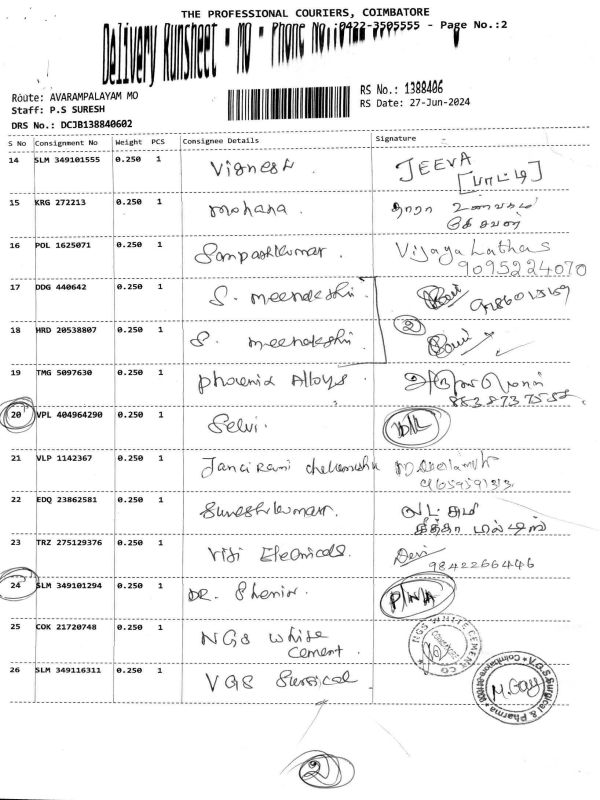 THE PROFESSIONAL COURIERS, COIMBATORE
Delivery Runsheet - MO - Phone No.:0422-3505555 - Page No.:2
Route: AVARAMPALAYAM MO
Staff: P.S SURESH
DRS No.: DCJB138840602
RS No.: 1388406
RS Date: 27-Jun-2024
S No Consignment No Weight PCS Consignee Details Signature
14 SLM 349101555 0.250 1 Vignesh. JEEVA
[பாட்டி]
15 KRG 272213 0.250 1 mohana. தாரா
16 POL 1625071 0.250 1 Sampathkumar. Vijayalatha
9095224070
17 DDG 440642 0.250 1 S. meenakshi.
18 HRD 20538807 0.250 1 S. meenakshi. 2
19 TMG 5097630 0.250 1 phoenix Alloys.
20 VPL 404964290 0.250 1 Selvi.
21 VLP 1142367 0.250 1 Janci Rani
22 EDQ 23862581 0.250 1 Sureshkumar.
23 TRZ 275129376 0.250 1 Devi
9842266446
24 SLM 349101294 0.250 1 DR. P/NA
25 COK 21720748 0.250 1 NGS White
cement. NGS WHITE CEMENT CO
26 SLM 349116311 0.250 1 VGS Surgical V.G.S. Surgical & Pharma * Coimbatore
2